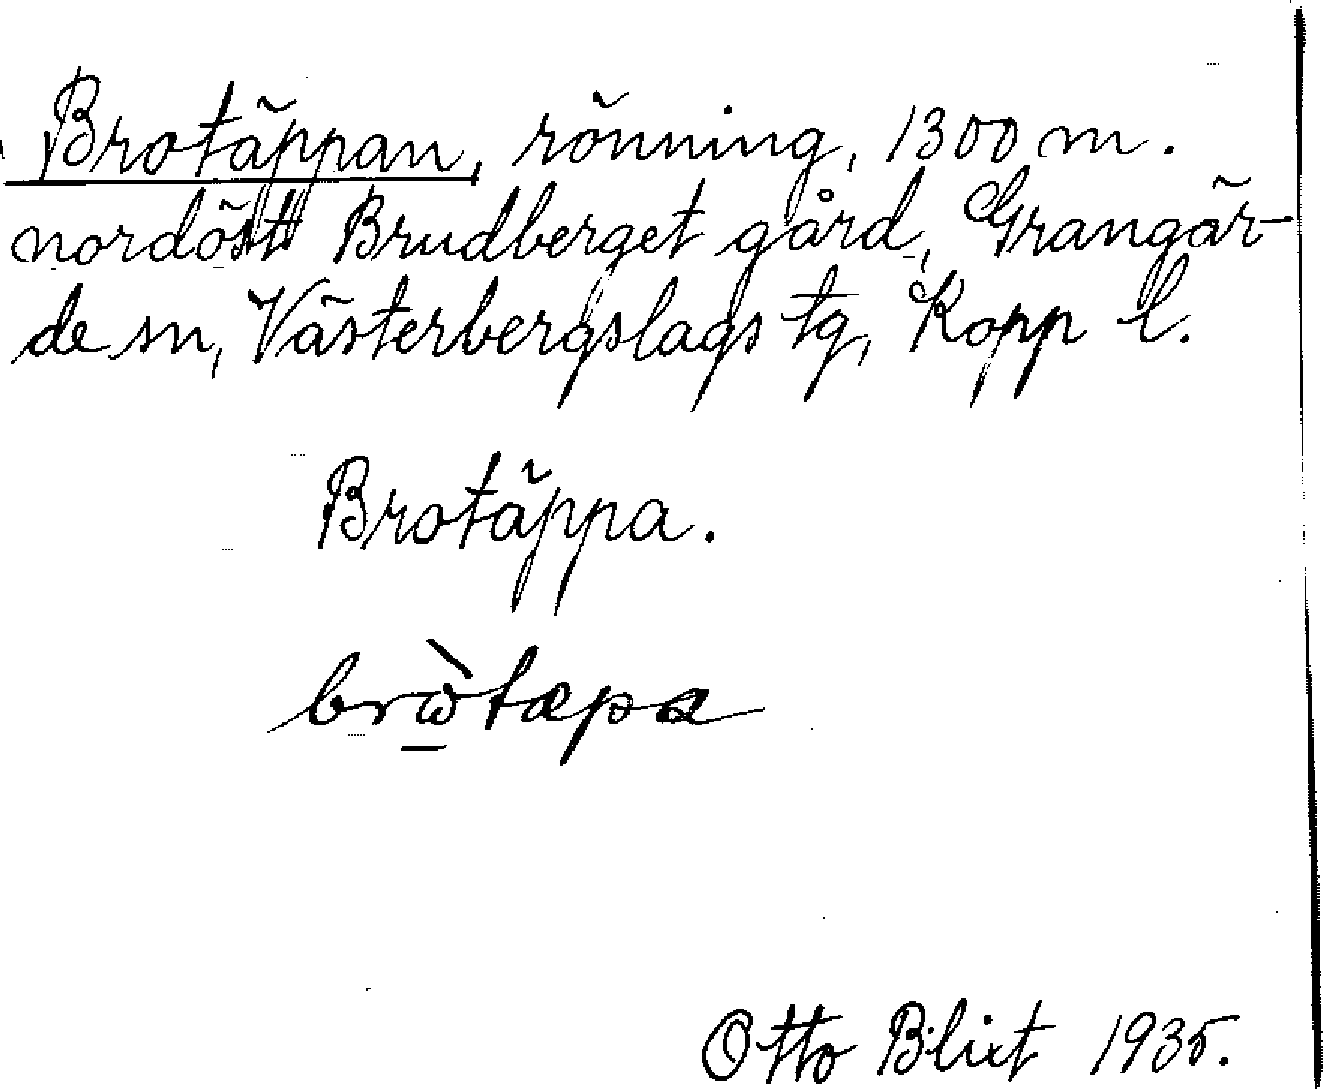 Brotäppan, rönning, 1300 m.
nordöst Brudberget gård, Grangär-
de sn, Västerbergslags tg, Kopp l.
Brotäppa.
brὼ̱tæpa
Otto Blixt 1935.